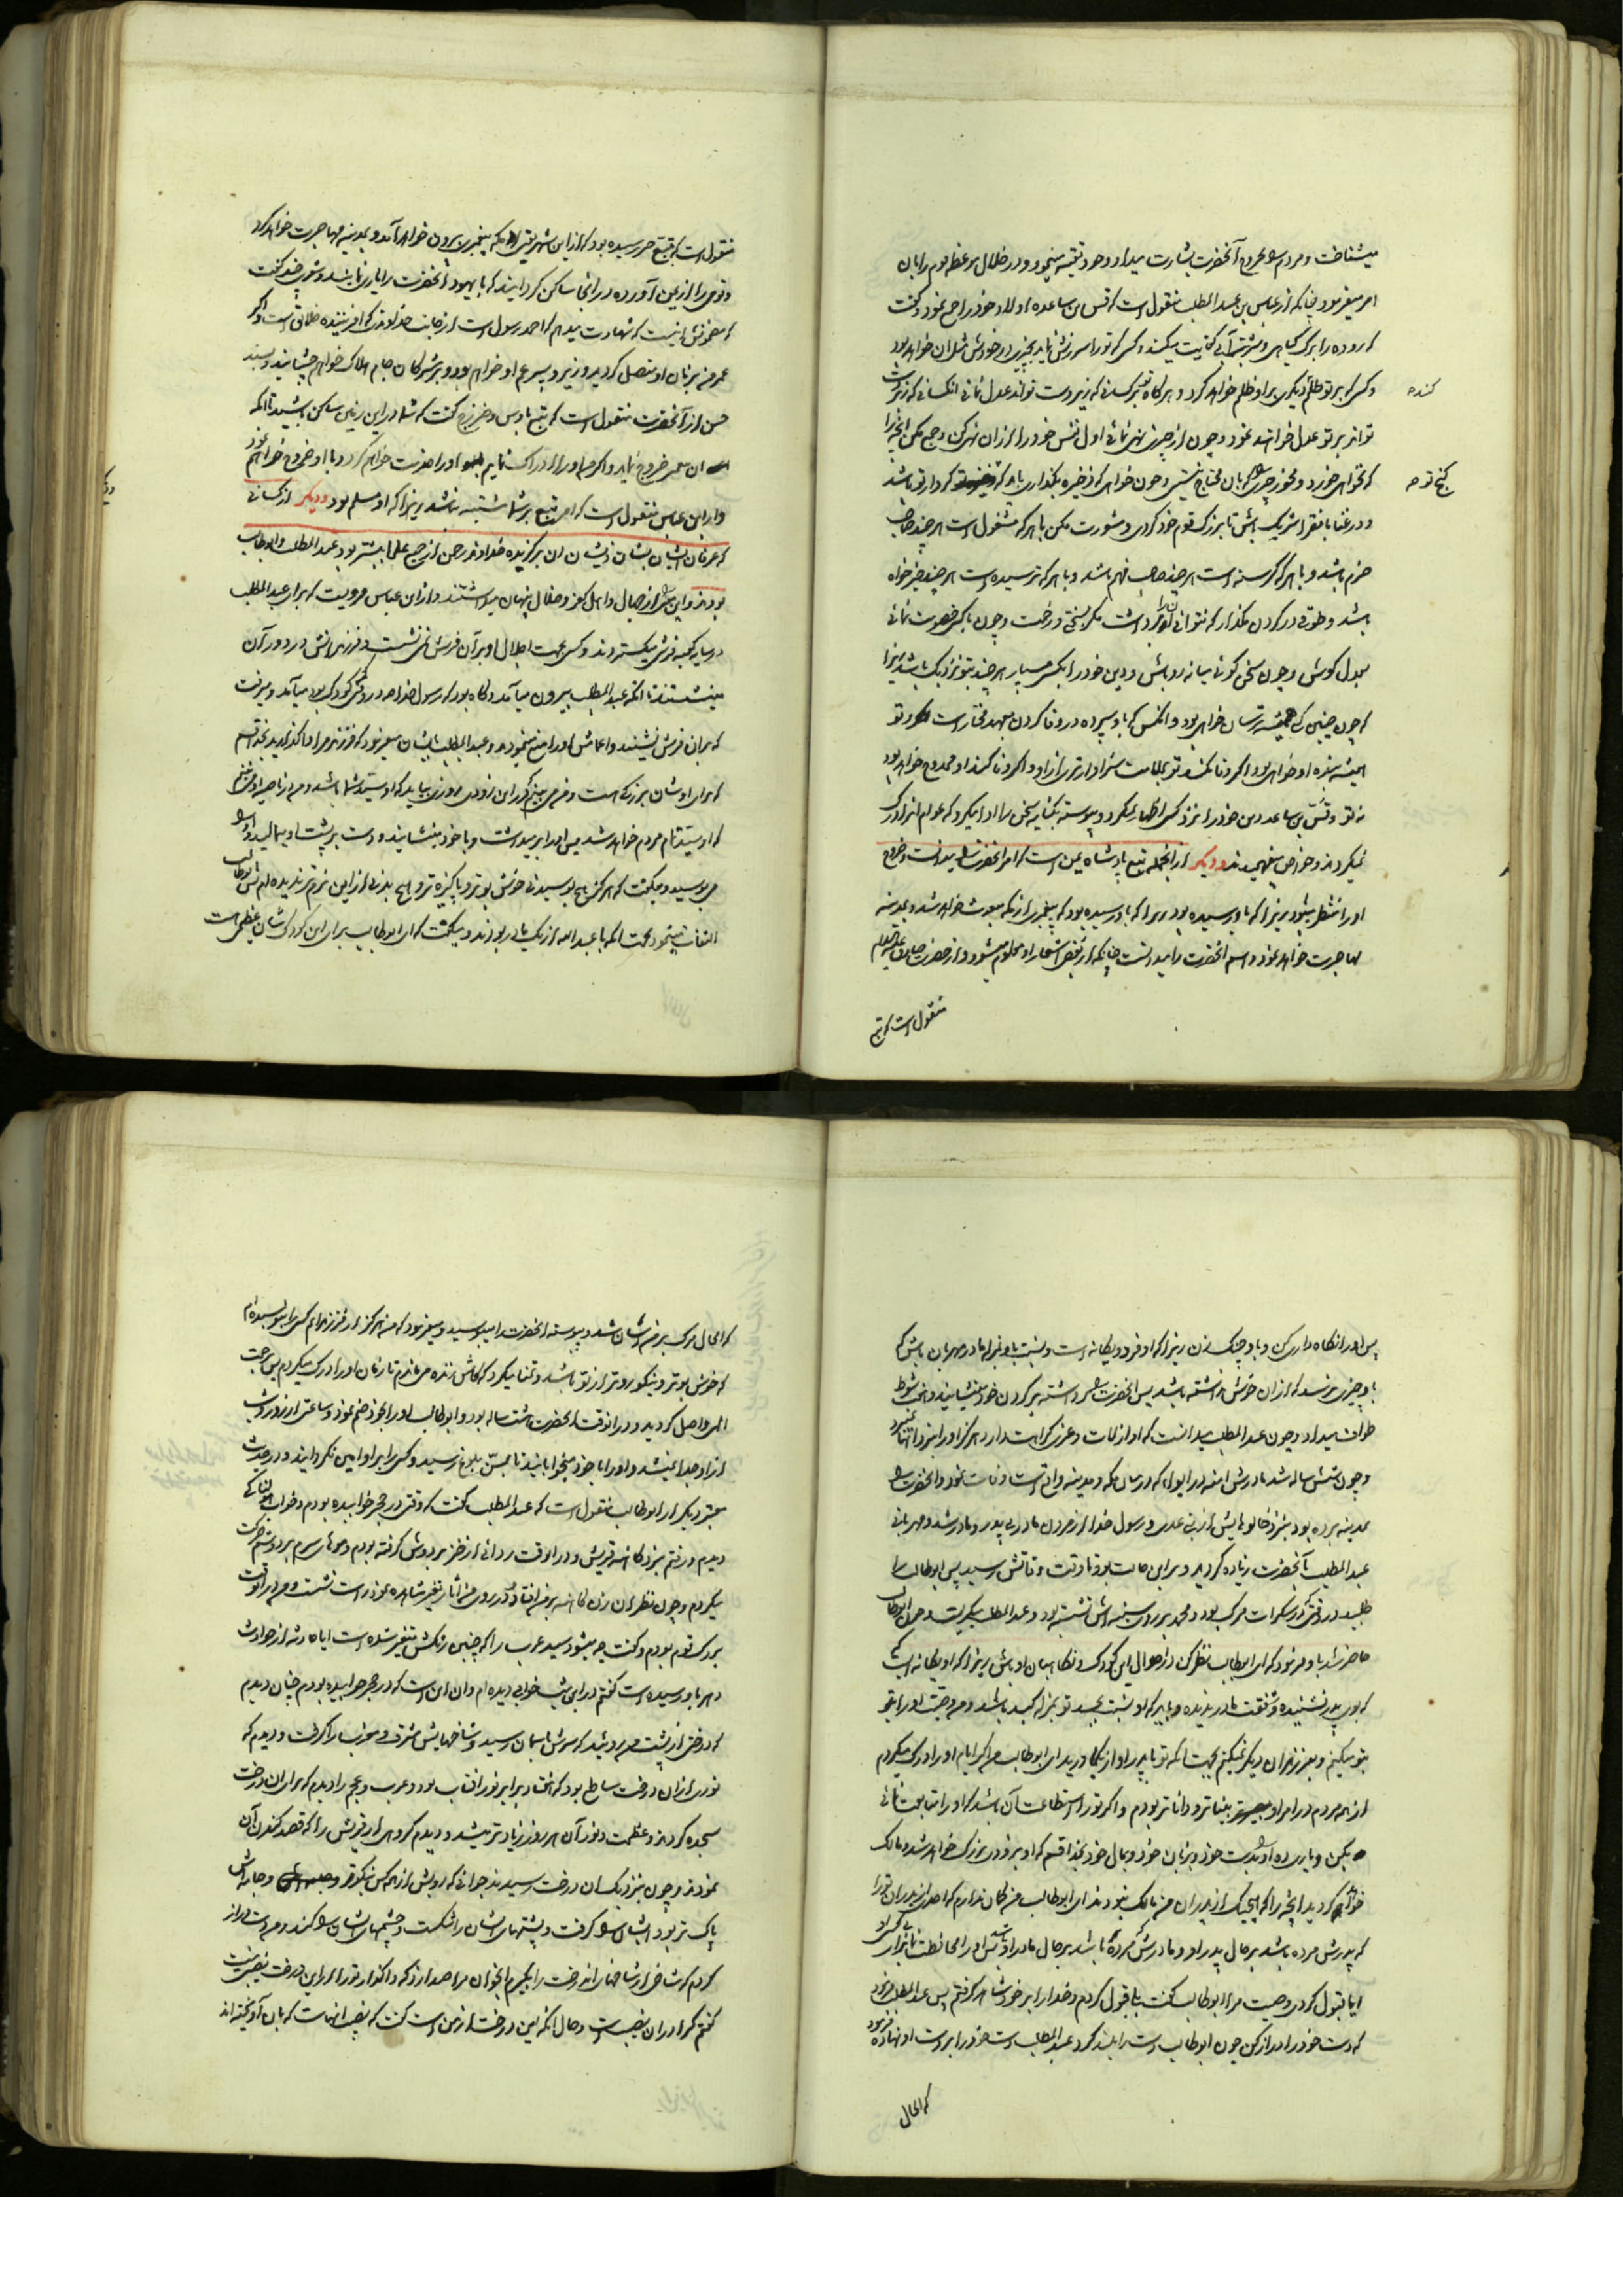 میشناخت و مردم را بخروج آنحضرت بشارت میداد و خود تقیه مینمود و در خلال مواعظ مردم را بآن
امر میفرمود چنانکه از عباس بن عبد المطلب منقول است که قس بن ساعده اولاد خود را جمع نمود و گفت
که روده را برگ گیاهی و شربت آبی کفایت میکند و کسی که تو را سرزنش نماید بچیزی در خودش مثل آن خواهد بود
کننده
و کسی که بر تو ظلم دیگری بر او ظلم خواهد کرد و هرگاه بر کسانی که زیردست تواند عدل نمائی آنکسانی که زبردست
تواند بر تو عدل خواهند نمود و چون از چیزی نهی نمائی اول نفس خود را از آن نهی کن و جمع مکن آنچه را
که نخواهی خورد و مخور چیزی را که بآن محتاج نیستی و چون خواهی که ذخیره بگذاری باید که کردار تو باشد
گنج تو
و در غنا با فقرا شریک باش تا بزرگ قوم خود گردی و مشورت مکن با هر که مشغول است هر چند صاحب
حزم باشد و با هر که گرسنه است هر چند صاحب فهم باشد و با هر که ترسیده است هر چند خیرخواه
باشد و طوقی در گردن مگذار که نتوانی آنرا برداشت مگر بسختی و زحمت و چون با کسی خصومت نمائی
بعدل کوش و چون سخن گوئی میانه رو باش و دین خود را بکسی مسپار هر چند بتو نزدیک باشد زیرا
که چون چنین کنی همیشه ترسان خواهی بود و آنکس که باو سپرده در وفا کردن بعهد مختار است و تو
همیشه بنده او خواهی بود اگر وفا نکند تو بملامت سزاوارتری از او و اگر وفا کند او ممدوح خواهد بود
نه تو و قسّ بن ساعده دین خود را نزد کسی اظهار نمیکرد و پیوسته بکنایه سخن را ادا میکرد که عوام آنرا درک
نمیکردند و خواص میفهمیدند و دیگر از آنجمله تبع پادشاه یمن است که امر آنحضرت را میدانست و خروج
او را منتظر میبود زیرا که باو رسیده بود که پیغمبری از مکه مبعوث خواهد شد و بمدینه
مهاجرت خواهد نمود و اسم آنحضرت را میدانست چنانکه از بعض اشعار او معلوم میشود و از حضرت صادق علیه السلام
منقول است که تبع
منقول است که تبع خبر رسیده بود که از این شهر یعنی مکه پیغمبری بیرون خواهد آمد و بمدینه مهاجرت خواهد کرد
و قومی را از یمن آورده در آنجا ساکن گردانید که با یهود آنحضرت را یاری نمایند و شعری چند گفت
که مضمونش اینست که شهادت میدهم که احمد رسول است از جانب خداوندی که آفریننده خلائق است و اگر
عمر من بزمان او متصل گردد وزیر و پسر عم او خواهم بود و بر مشرکان جام هلاک خواهم چشانید و بسند
حسن از آنحضرت منقول است که تبع باوس و خزرج گفت که شما در این زمین ساکن باشید تا آنکه
این پیغمبر خروج نماید و اگر من او را ادراک نمایم او را نصرت خواهم کرد و با او خروج خواهم نمود
و از ابن عباس منقول است که امر تبع بر شما مشتبه نباشد زیرا که او مسلم بود و دیگر از کسانی
که عرفان ایشان بشأن ذیشان آن برگزیده خداوند رحمن از جمیع علما بیشتر بود عبد المطلب و ابو طالب
بودند و این سرّ را از جهال و اهل کفر و ضلال پنهان میداشتند و از ابن عباس مرویست که برای عبد المطلب
در سایه کعبه فرش میگستردند و کسی بجهت اجلال او بر آن فرش نمی نشست و فرزندانش در دور آن
مینشستند تا آنکه عبد المطلب بیرون میآمد و گاه بود که رسول خدا در وقتی که کودک بود میآمد و میرفت
که بر آن فرش بنشیند و اعمامش او را منع مینمودند و عبد المطلب بایشان میفرمود که فرزند مرا واگذارید بخدا قسم
که برای او شان بزرگی است و من میبینم که در این زودی روزی بیاید که او سید شما باشد و من از ناصیه او میبینم
که او سید تمام مردم خواهد شد پس او را بر میداشت و با خود مینشانید و دست بر پشت او میمالید و او را
میبوسید و میگفت که هرگز هیچ بوسیدنی خوش بوتر و پاکیزه تر و هیچ بدنی از این نرم تر ندیده ام پس بابو طالب
التفات مینمود بجهت آنکه با عبد الله از یک مادر بودند و میگفت که ای ابو طالب برای این کودک شان عظیمی است
پس او را نگاهداری کن و باو چنگ زن زیرا که او فرد و یگانه است و نسبت باو بمنزله مادر مهربان باش که
باو چیزی نرسد که از آن خوش نداشته باشد پس آنحضرت را برداشته بر گردن خود مینشانید و هفت شوط
طواف میداد و چون عبد المطلب میدانست که او از لات و عزی کراهت دارد هرگز او را نزد آنها نمیبرد
و چون شش ساله شد مادرش آمنه در ابواء که در میان مکه و مدینه واقع است وفات نمود و آنحضرت را
بمدینه برده بود بنزد خالوهایش از بنی عدی و رسول خدا از مردن مادر بی پدر و مادر شد و مهربانی
عبد المطلب بآنحضرت زیاده گردید و بر این حالت بود تا وقت وفاتش رسید پس ابو طالب را
طلبید در وقتی که در سکرات مرگ بود و محمد بر روی سینه اش نشسته بود و عبد المطلب میگریست و چون ابو طالب
حاضر شد باو فرمود که ای ابو طالب نظر کن در احوال این کودک و نگاهبان او باش زیرا که او یگانه ایست
که بوی پدر نشنیده و شفقت مادر ندیده و باید که او نسبت بجسد تو بمنزله کبد باشد و من وصیت او را بتو
بتو میکنم و بفرزندان دیگر نمیکنم بجهت آنکه تو با پدر او از یک مادرید ای ابو طالب من اگر ایام او را درک میکردم
از همه مردم در امر او بیناتر و داناتر بودم و اگر تو را استطاعت آن باشد که او را متابعت نمائی
بکن و یاری ده او را بدست خود و زبان خود و بمال خود بخدا قسم که او بزودی بزرگ خواهد شد و مالک
خواهد گردید آنچه را که هیچیک از پدران من مالک نبودند ای ابو طالب من گمان ندارم که احدی از پدران تو را
که پدرش مرده باشد بر حال پدر او و مادرش مرده باشد بر حال مادر او پس او را محافظت نما
آیا قبول کردی وصیت مرا ابو طالب گفت بلی قبول کردم و خدا را بر خود شاهد گرفتم پس عبد المطلب فرمود
که دست خود را دراز کن چون ابو طالب دست را بلند کرد عبد المطلب دست خود را بر دست او نهاده فرمود
که الحال
که الحال مرگ بر من آسان شد و پیوسته آنحضرت را میبوسید و میفرمود که من هرگز از فرزندانم کسی را نبوسیده ام
که خوش بوتر و نیکوروتر از تو باشد و تمنا میکرد که کاش زنده میماندم تا زمان او را درک میکردم پس برحمت
الهی واصل گردید و در آنوقت آنحضرت هشت ساله بود و ابو طالب او را بخود ضم نمود و ساعتی از روز و شب
از او جدا نمیشد و او را با خود میخوابانید تا بسنّ بلوغ رسید و کسی را بر او امین نگردانید و در حدیث
معتبر دیگر از ابو طالب منقول است که عبد المطلب گفت که وقتی در حجر خوابیده بودم و خواب هولناکی
دیدم و رفتم بنزد کاهنه قریش و در آنوقت ردائی از خز بر دوش گرفته بودم و موهای سرم بر دوشم حرکت
میکردم و چون نظر آن زن کاهنه بر من افتاد در روی من آثار تغییر مشاهده نموده راست نشست و من در آنوقت
بزرگ قوم بودم و گفت چه میشود سید عرب را که چنین رنگش متغیر شده است آیا حادثه از حوادث
دهر باو رسیده است گفتم در این شب خوابی دیده ام و آن این است که در حجر خوابیده بودم چنان دیدم
که درختی از پشت من روئید که سرش بآسمان رسید و شاخهایش مشرق و مغرب را گرفت و دیدم که
نوری از آن درخت ساطع بود که هفتاد برابر نور آفتاب بود و عرب و عجم را دیدم که برای آن درخت
سجده کردند و عظمت و نور آن هر روز زیادتر میشد و دیدم گروهی از قریش را که قصد کندن آن
نمودند و چون بنزدیک آن درخت رسیدند جوانی که رویش از همه کس نیکوتر و جامه اش
پاک تر بود ایشان را گرفت و پشتهای ایشان را شکست و چشمهای ایشان را کند و من دست دراز
کردم که شاخی از شاخهای آن درخت را بگیرم آن جوان مرا صدا زد که واگذار تو را از این درخت نصیبی نیست
گفتم که را در آن نصیب است و حال آنکه این درخت از من است گفت که نصیب آنهاست که بآن آویخته اند